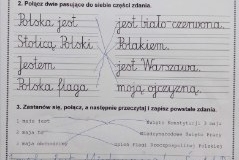 2. Połącz dwie pasujące do siebie części zdania.
Polska jest jest biało-czerwona.
Stolicą Polski Polakiem.
Jestem jest Warszawa.
Polska flaga moją ojczyzną.
3. Zastanów się, połącz, a następnie przeczytaj i zapisz powstałe zdania.
1 maja jest Święto Konstytucji 3 maja
2 maja to Międzynarodowe Święto Pracy
3 maja obchodzimy Dzień Flagi Rzeczypospolitej Polskiej